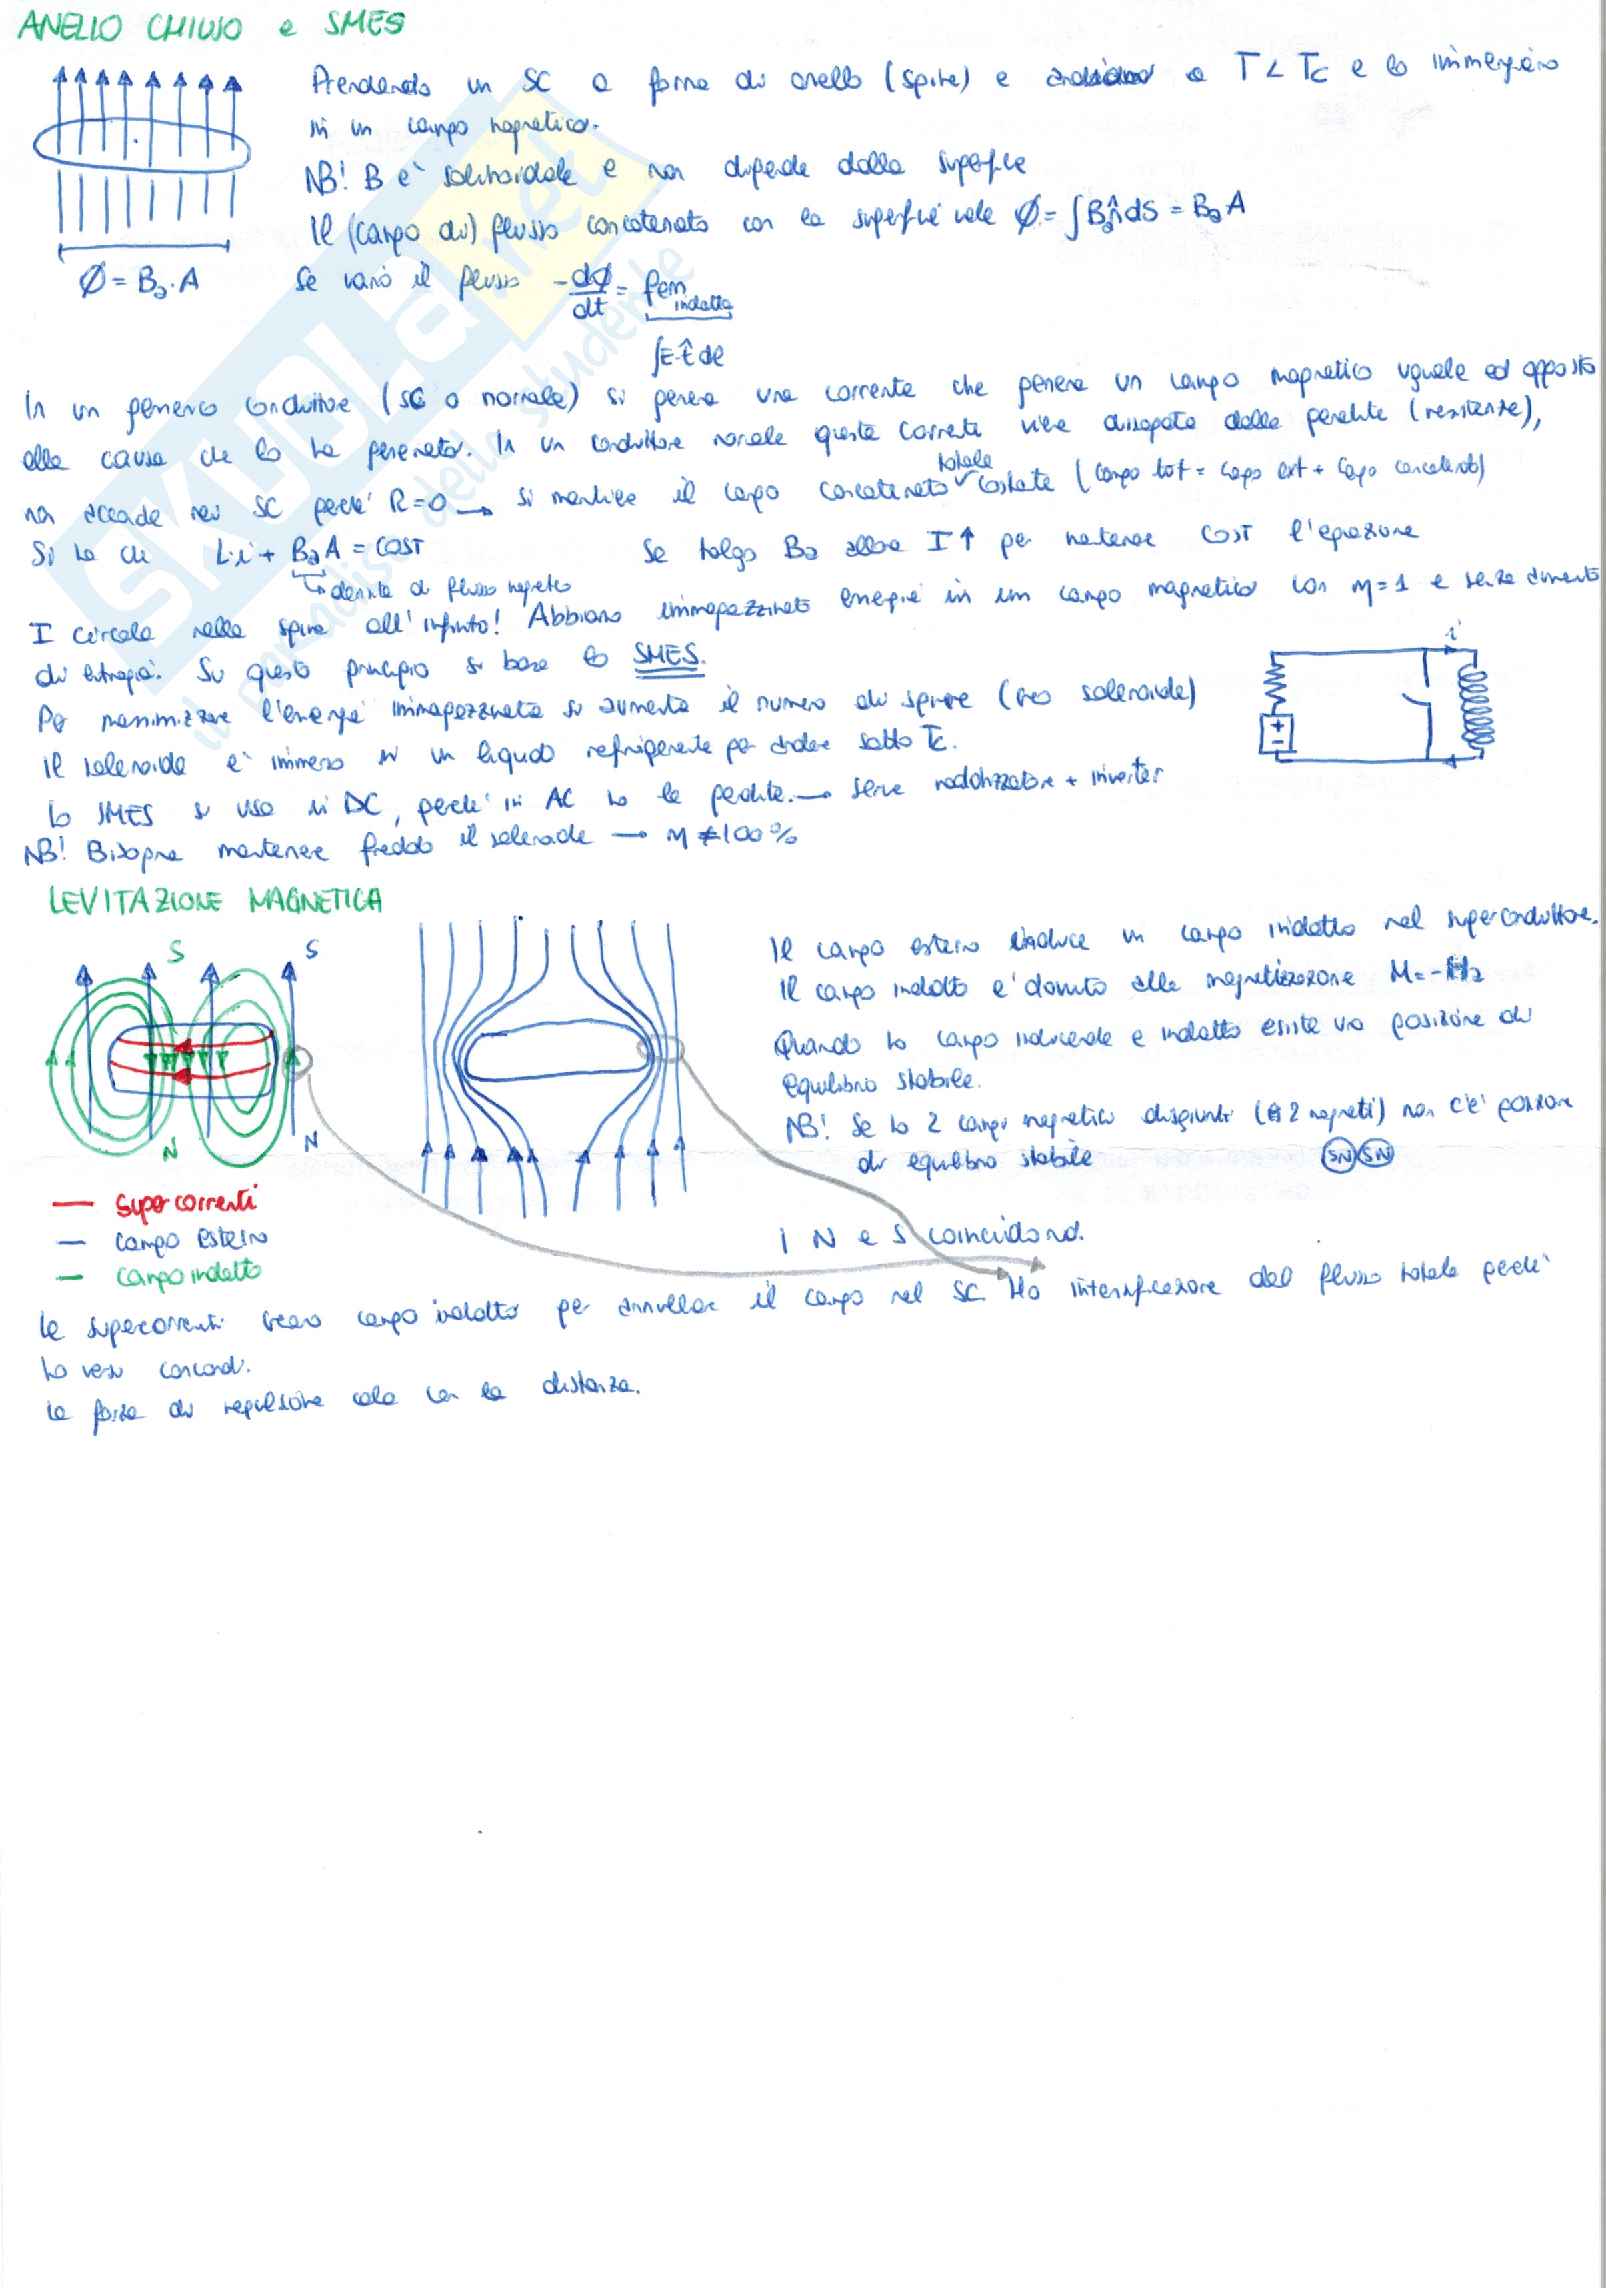 ANELLO CHIUSO e SMES
Prendendo un SC a forma di anello (spire) e a T < Tc e lo immergiamo
in un campo magnetico.
NB! B è solenoidale e non dipende dalla superficie
Il (campo di) flusso concatenato con la superficie vale Φ = ∫Ba n̂ dS = Ba A
Φ = Ba · A
Se vario il flusso -dΦ/dt = fem indotta
∫E·t̂ dl
In un generico conduttore (SC o normale) si genera una corrente che genera un campo magnetico uguale ed opposto
alla causa che lo ha generato. In un conduttore normale questa corrente viene dissipata dalle perdite (resistenze),
non accade nei SC perchè R=0 → si mantiene il campo concatenato totale costante (campo tot = campo ext + campo concatenato)
Si ha che L·i + Ba A = COST Se tolgo Ba allora I ↑ per mantenere COST l'equazione
↳ densità di flusso magnetico
I circola nella spira all'infinito! Abbiamo immagazzinato energia in un campo magnetico con η=1 e senza aumento
di entropia. Su questo principio si basa lo SMES.
Per massimizzare l'energia immagazzinata si aumenta il numero di spire (uso solenoide)
Il solenoide è immerso in un liquido refrigerante per andare sotto Tc.
Lo SMES si usa in DC, perchè in AC ho le perdite. → serve raddrizzatore + inverter
NB! Bisogna mantenere freddo il solenoide → η ≠ 100%
i
+
-
LEVITAZIONE MAGNETICA
S
S
N
N
Supercorrenti
campo esterno
campo indotto
Il campo esterno induce un campo indotto nel superconduttore.
Il campo indotto è dovuto alla magnetizzazione M = -Ha
Quando ho campo inducente e indotto esiste una posizione di
equilibrio stabile.
NB! Se ho 2 campi magnetici disgiunti (2 magneti) non c'è posizione
di equilibrio stabile SN SN
i N e S coincidono.
Le supercorrenti creano campo indotto per annullare il campo nel SC. Ho intensificazione del flusso totale perchè
ho versi concordi.
La forza di repulsione cala con la distanza.